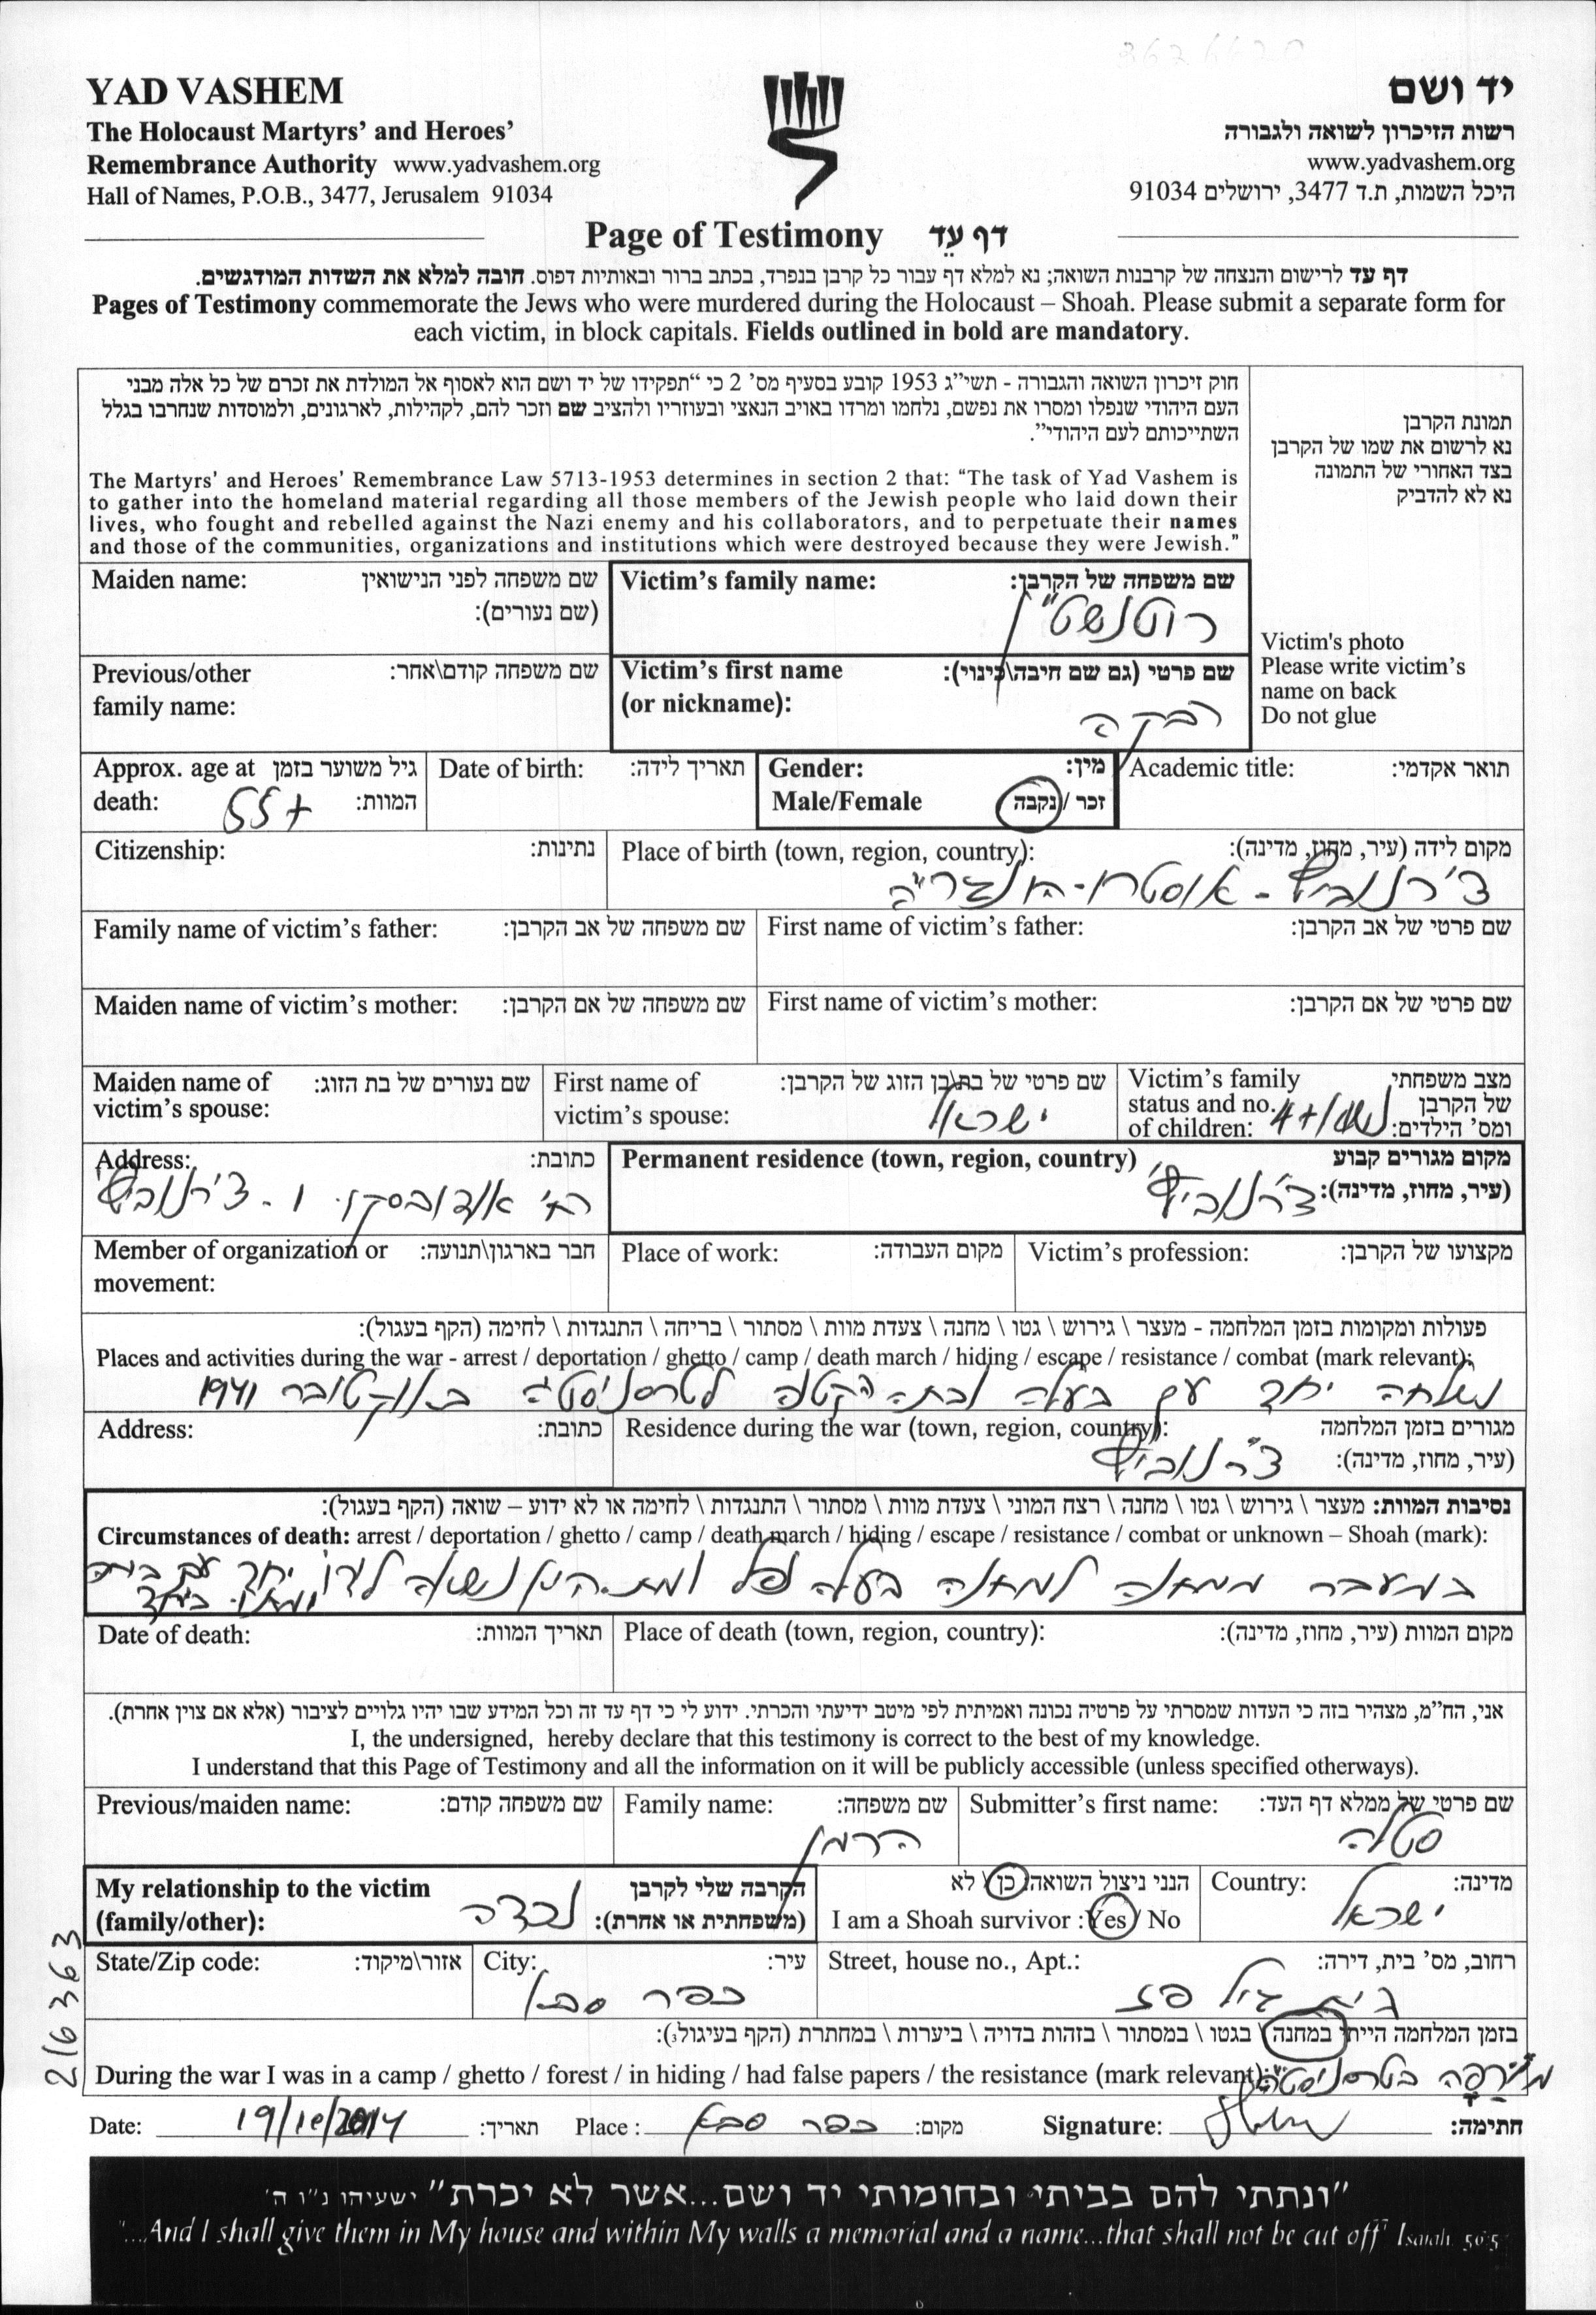 YAD VASHEM
The Holocaust Martyrs' and Heroes'
Remembrance Authority www.yadvashem.org
Hall of Names, P.O.B., 3477, Jerusalem 91034
יד ושם
רשות הזיכרון לשואה ולגבורה
www.yadvashem.org
היכל השמות, ת.ד 3477, ירושלים 91034
Page of Testimony דף עֵד
דף עד לרישום והנצחה של קרבנות השואה; נא למלא דף עבור כל קרבן בנפרד, בכתב ברור ובאותיות דפוס. חובה למלא את השדות המודגשים.
Pages of Testimony commemorate the Jews who were murdered during the Holocaust – Shoah. Please submit a separate form for
each victim, in block capitals. Fields outlined in bold are mandatory.
חוק זיכרון השואה והגבורה - תשי"ג 1953 קובע בסעיף מס' 2 כי "תפקידו של יד ושם הוא לאסוף אל המולדת את זכרם של כל אלה מבני
העם היהודי שנפלו ומסרו את נפשם, נלחמו ומרדו באויב הנאצי ובעוזריו ולהציב שם וזכר להם, לקהילות, לארגונים, ולמוסדות שנחרבו בגלל
השתייכותם לעם היהודי".
The Martyrs' and Heroes' Remembrance Law 5713-1953 determines in section 2 that: "The task of Yad Vashem is
to gather into the homeland material regarding all those members of the Jewish people who laid down their
lives, who fought and rebelled against the Nazi enemy and his collaborators, and to perpetuate their names
and those of the communities, organizations and institutions which were destroyed because they were Jewish."
תמונת הקרבן
נא לרשום את שמו של הקרבן
בצד האחורי של התמונה
נא לא להדביק
Victim's photo
Please write victim's
name on back
Do not glue
Maiden name: שם משפחה לפני הנישואין
(שם נעורים):
Victim's family name: שם משפחה של הקרבן:
רוטנשטיין
Previous/other שם משפחה קודם\אחר:
family name:
Victim's first name שם פרטי (גם שם חיבה\כינוי):
(or nickname):
רבקה
Approx. age at גיל משוער בזמן
death: 55+ המוות:
Date of birth: תאריך לידה:
Gender: מין:
Male/Female זכר / נקבה
Academic title: תואר אקדמי:
Citizenship: נתינות:
Place of birth (town, region, country): מקום לידה (עיר, מחוז, מדינה):
צ'רנוביץ - אוסטרו-הונגריה
Family name of victim's father: שם משפחה של אב הקרבן:
First name of victim's father: שם פרטי של אב הקרבן:
Maiden name of victim's mother: שם משפחה של אם הקרבן:
First name of victim's mother: שם פרטי של אם הקרבן:
Maiden name of שם נעורים של בת הזוג:
victim's spouse:
First name of שם פרטי של בת\בן הזוג של הקרבן:
victim's spouse: ישראל
Victim's family מצב משפחתי
status and no. של הקרבן
of children: ומס' הילדים: נשואה/4+
Address: כתובת:
צ'רנוביץ
Permanent residence (town, region, country) מקום מגורים קבוע
(עיר, מחוז, מדינה): צ'רנוביץ
Member of organization or חבר בארגון\תנועה:
movement:
Place of work: מקום העבודה:
Victim's profession: מקצועו של הקרבן:
פעולות ומקומות בזמן המלחמה - מעצר \ גירוש \ גטו \ מחנה \ צעדת מוות \ מסתור \ בריחה \ התנגדות \ לחימה (הקף בעגול):
Places and activities during the war - arrest / deportation / ghetto / camp / death march / hiding / escape / resistance / combat (mark relevant):
נשלחה יחד עם בעלה ובתה הקטנה לטרנסניסטריה באוקטובר 1941
Address: כתובת:
Residence during the war (town, region, country): מגורים בזמן המלחמה
(עיר, מחוז, מדינה): צ'רנוביץ
נסיבות המוות: מעצר \ גירוש \ גטו \ מחנה \ רצח המוני \ צעדת מוות \ מסתור \ התנגדות \ לחימה או לא ידוע – שואה (הקף בעגול):
Circumstances of death: arrest / deportation / ghetto / camp / death march / hiding / escape / resistance / combat or unknown – Shoah (mark):
במעבר ממחנה למחנה בעלה נפל ומת. היא נשארה לידו יחד עם ביתה
ומתו ביחד
Date of death: תאריך המוות:
Place of death (town, region, country): מקום המוות (עיר, מחוז, מדינה):
אני, הח"מ, מצהיר בזה כי העדות שמסרתי על פרטיה נכונה ואמיתית לפי מיטב ידיעתי והכרתי. ידוע לי כי דף עד זה וכל המידע שבו יהיו גלויים לציבור (אלא אם צוין אחרת).
I, the undersigned, hereby declare that this testimony is correct to the best of my knowledge.
I understand that this Page of Testimony and all the information on it will be publicly accessible (unless specified otherways).
Previous/maiden name: שם משפחה קודם:
Family name: שם משפחה:
הרמן
Submitter's first name: שם פרטי של ממלא דף העד:
סטלה
My relationship to the victim הקרבה שלי לקרבן
(family/other): (משפחתית או אחרת): נכדה
הנני ניצול השואה: כן \ לא
I am a Shoah survivor : Yes / No
Country: מדינה:
ישראל
State/Zip code: אזור\מיקוד:
City: עיר:
כפר סבא
Street, house no., Apt.: רחוב, מס' בית, דירה:
בית גיל פז
בזמן המלחמה הייתי במחנה \ בגטו \ במסתור \ בזהות בדויה \ ביערות \ במחתרת (הקף בעיגול):
During the war I was in a camp / ghetto / forest / in hiding / had false papers / the resistance (mark relevant):
Date: 19/10/2014 תאריך:
Place : כפר סבא מקום:
Signature: חתימה:
216363
"ונתתי להם בביתי ובחומותי יד ושם...אשר לא יכרת" ישעיהו נ"ו ה'
"...And I shall give them in My house and within My walls a memorial and a name...that shall not be cut off" Isaiah 56:5